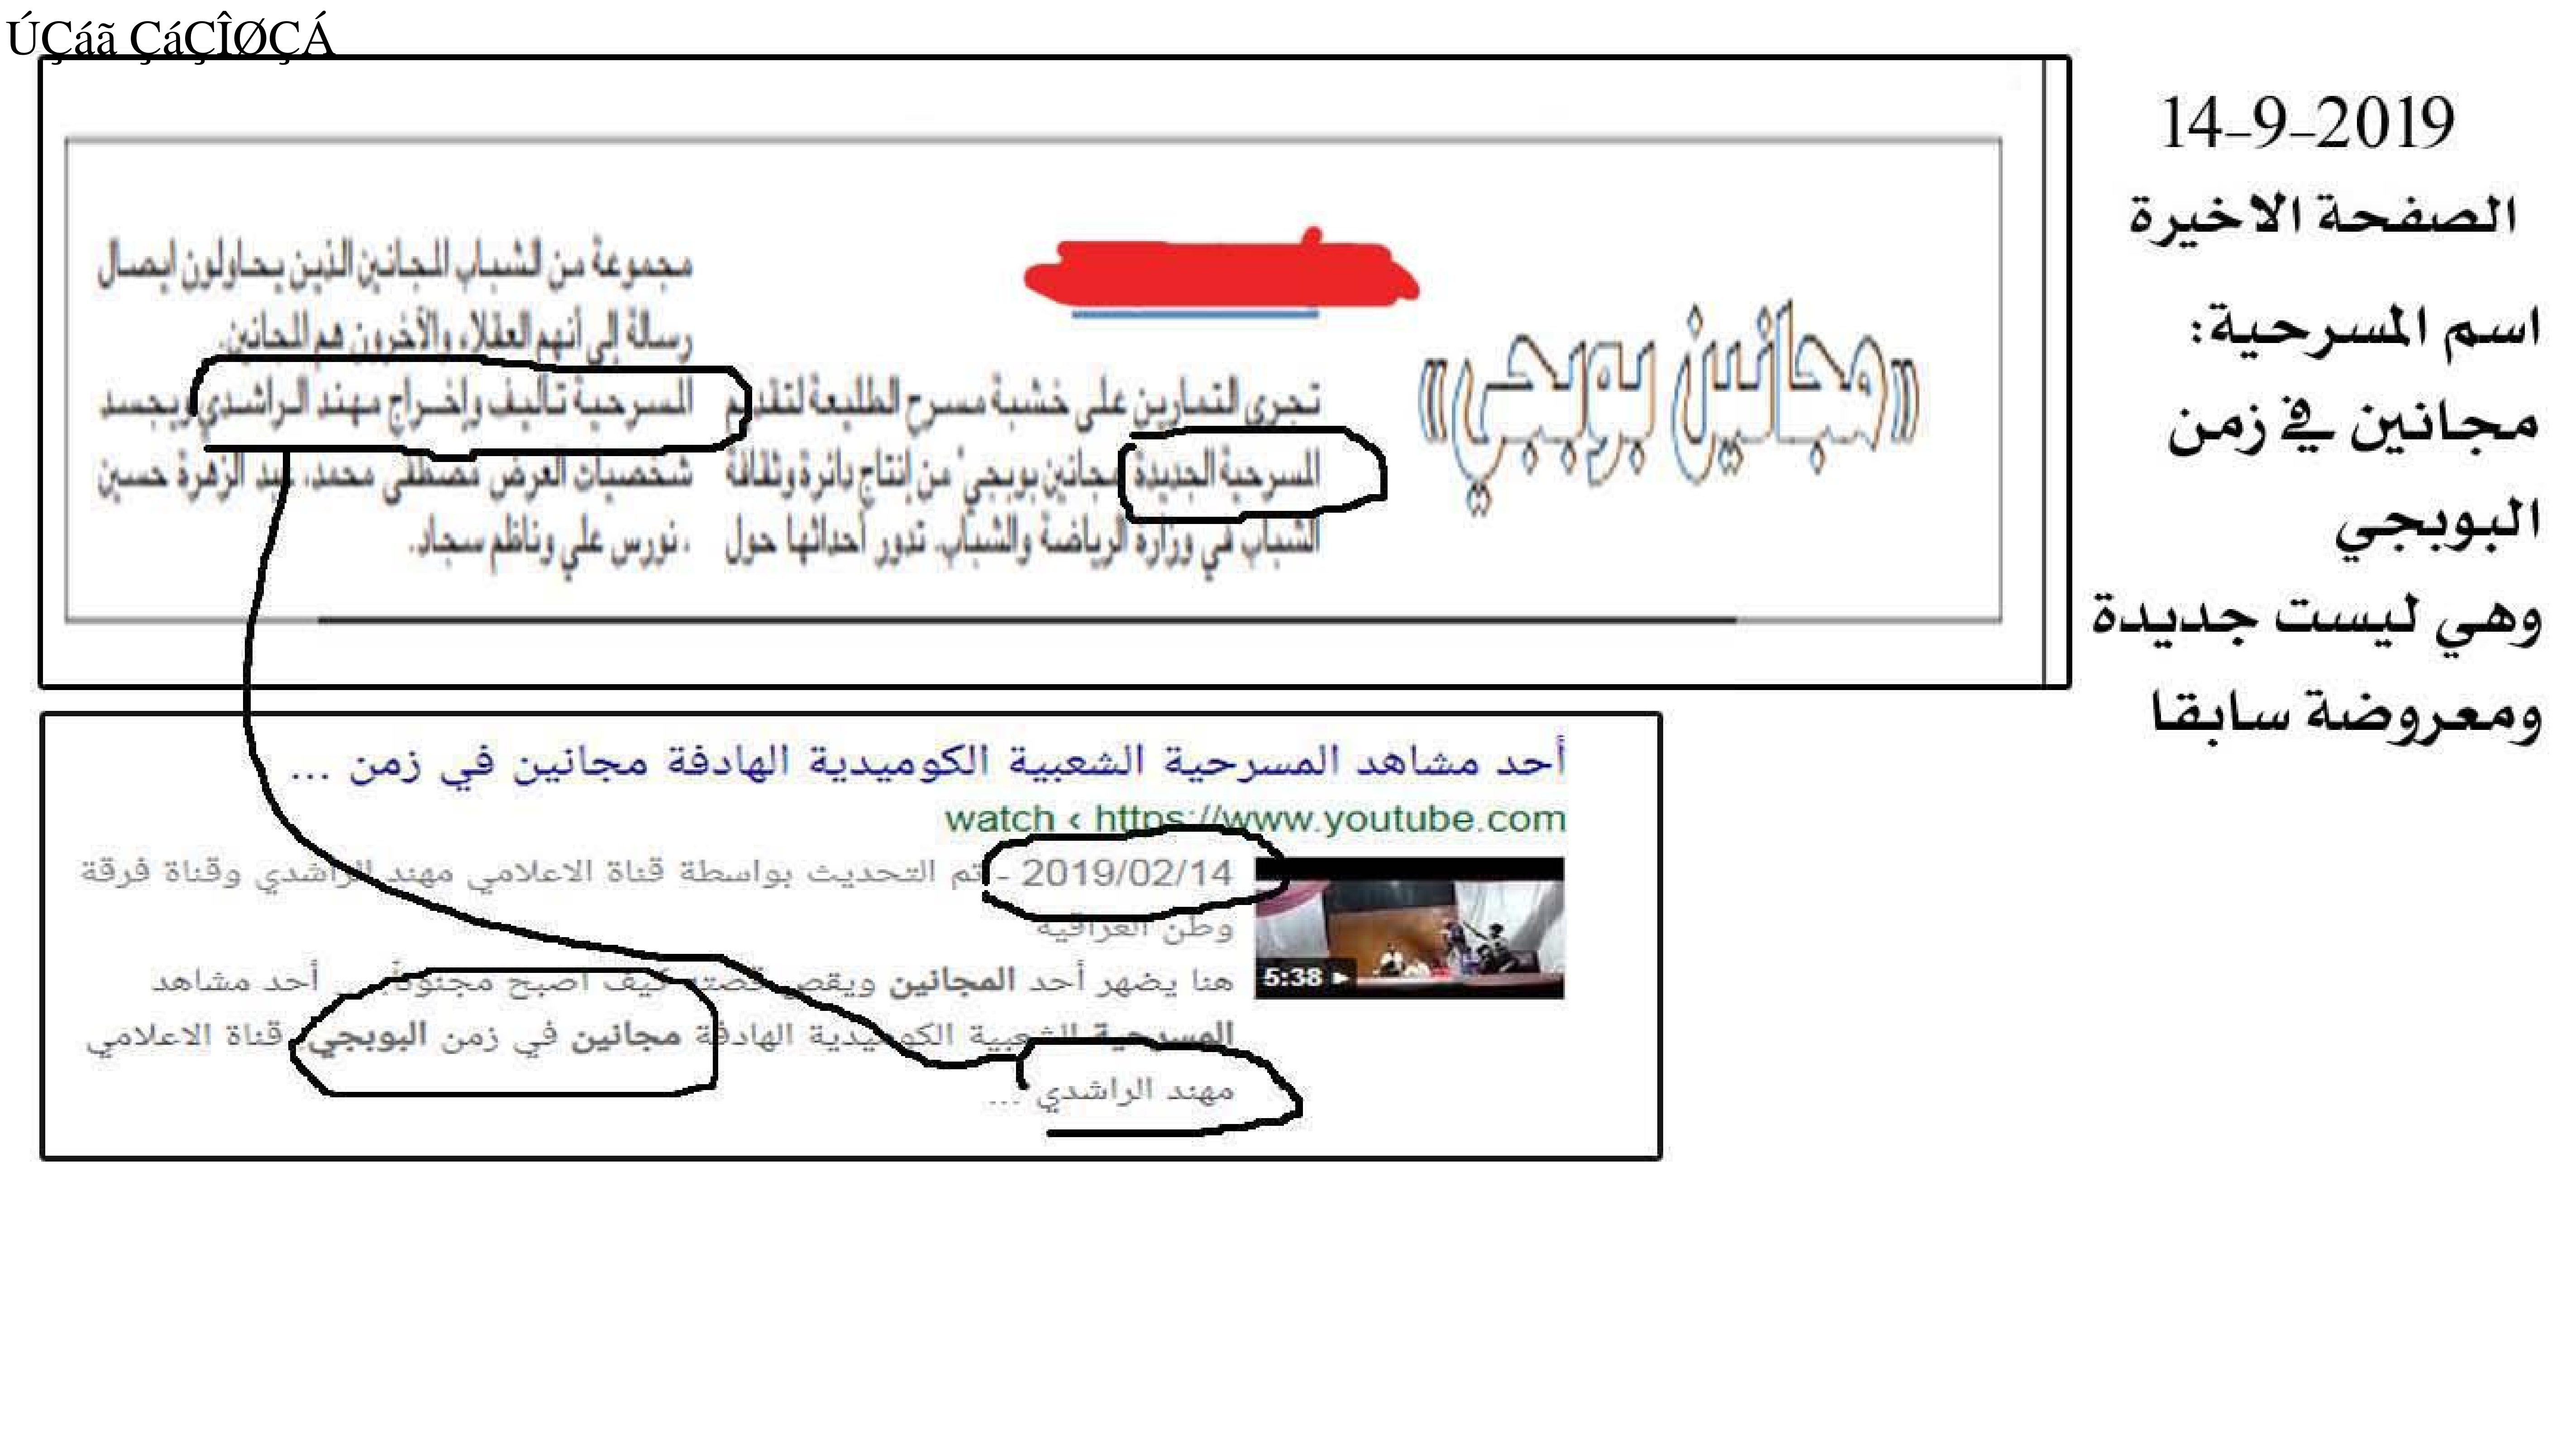 ÚÇáã ÇáÇÎØÇÁ
14-9-2019
الصفحة الاخيرة
اسم المسرحية:
مجانين في زمن
البوبجي
وهي ليست جديدة
ومعروضة سابقا
«مجانين بوبجي»
تجرى التمارين على خشبة مسرح الطليعة لتقديم
المسرحية الجديدة مجانين بوبجي" من إنتاج دائرة وثقافة
الشباب في وزارة الرياضة والشباب. تدور أحداثها حول
مجموعة من الشباب المجانين الذين يحاولون ايصال
رسالة إلى أنهم العقلاء والآخرون هم المجانين.
المسرحية تأليف وإخراج مهند الراشدي ويجسد
شخصيات العرض مصطفى محمد، عبد الزهرة حسين
، نورس علي وناظم سجاد.
أحد مشاهد المسرحية الشعبية الكوميدية الهادفة مجانين في زمن ...
https://www.youtube.com › watch
14/02/2019 - تم التحديث بواسطة قناة الاعلامي مهند الراشدي وقناة فرقة
وطن العراقية
هنا يضهر أحد المجانين ويقص قصته كيف اصبح مجنوناً. ... أحد مشاهد
المسرحية الشعبية الكوميدية الهادفة مجانين في زمن البوبجي. قناة الاعلامي
مهند الراشدي ...
5:38